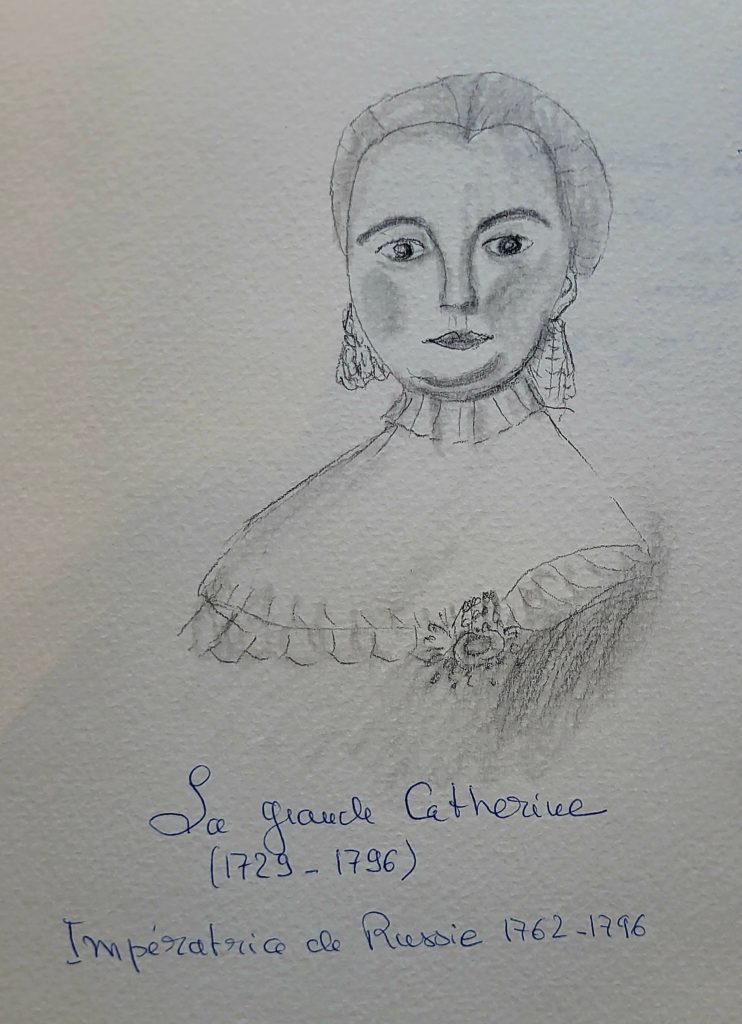 La grande Catherine
(1729-1796)
Impératrice de Russie 1762-1796